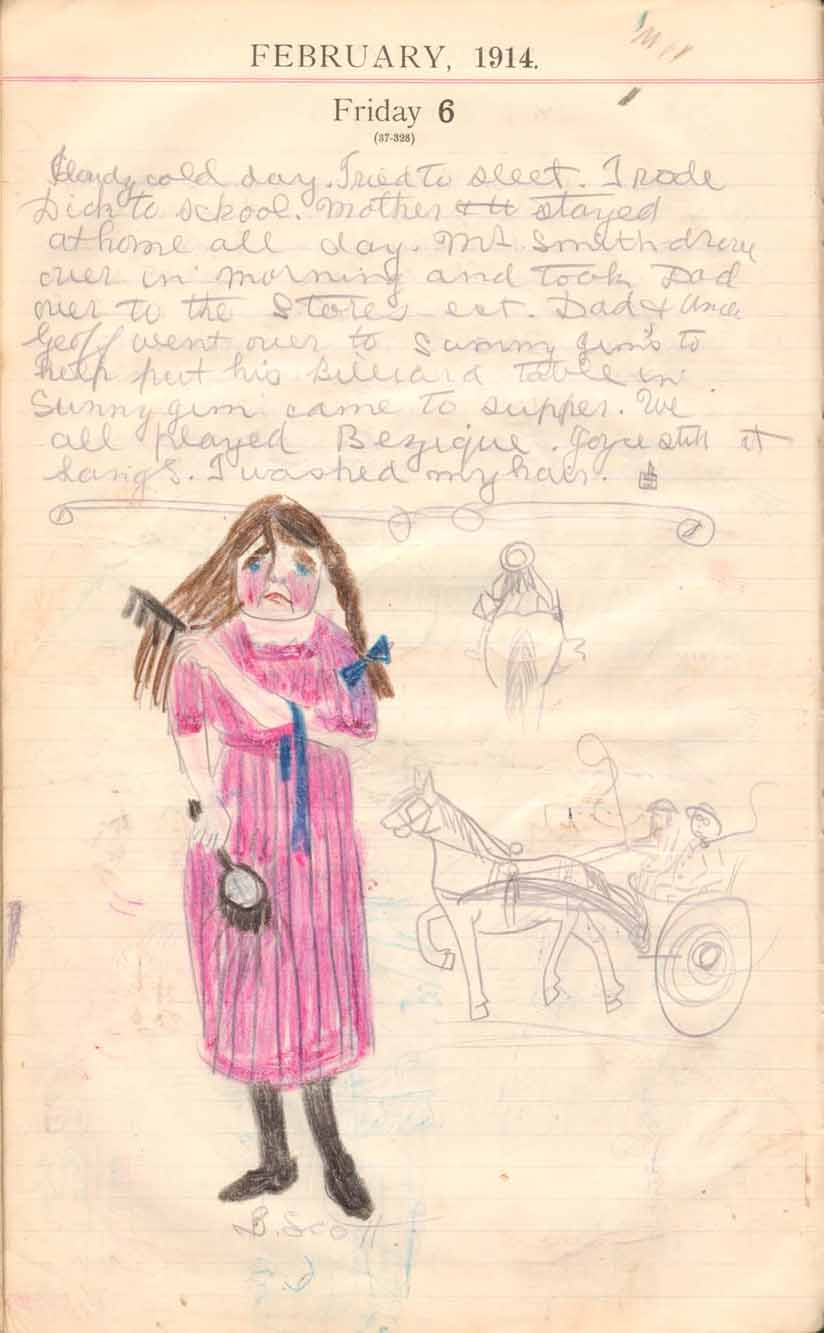 FEBRUARY, 1914.
Friday 6
(37-328)
cold day. Tried to sleet. I rode
Dick to school. Mother stayed
at home all day. Mr. Smith drove
over in morning and took Dad
over to the Stores ect. Dad &
Geoff went over to Sunny Jim's to
help put his Billiard table in
Sunny gim came to supper. We
all played Bezique. Joyce still at
Langs. I washed my hair.
B. Scott
6